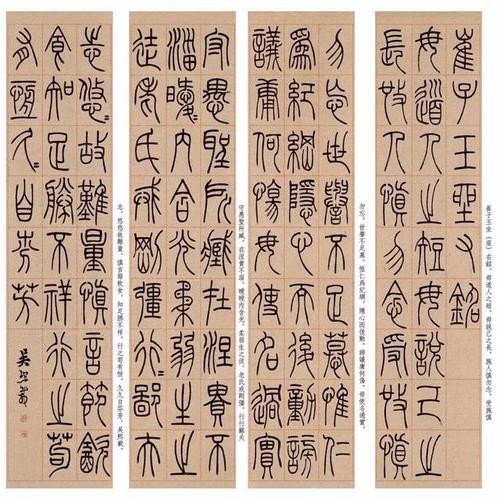 崔子玉坐右銘
毋道人之短毋說己之
長施人慎勿念受施慎
崔子玉坐（座）右銘，毋道人之短，毋說己之長，施人慎勿念，受施慎
勿忘世譽不足慕惟仁
爲紀綱隱心而後動謗
議庸何傷毋使名過實
勿忘，世譽不足慕，惟仁爲紀綱，隱心而後動，謗議庸何傷，毋使名過實，
守愚聖所臧在涅貴不
淄曖〻內含光柔弱生之
徒老氏戒剛彊行〻鄙夫
守愚聖所臧，在涅貴不淄，曖曖內含光，柔弱生之徒，老氏戒剛彊，行行鄙夫
志悠〻故難量慎言節飲
食知足勝不祥行之苟
有恆久〻自芬芳
吳熙載
志，悠悠故難量，慎言節飲食，知足勝不祥，行之苟有恒，久久自芬芳，吳熙載。